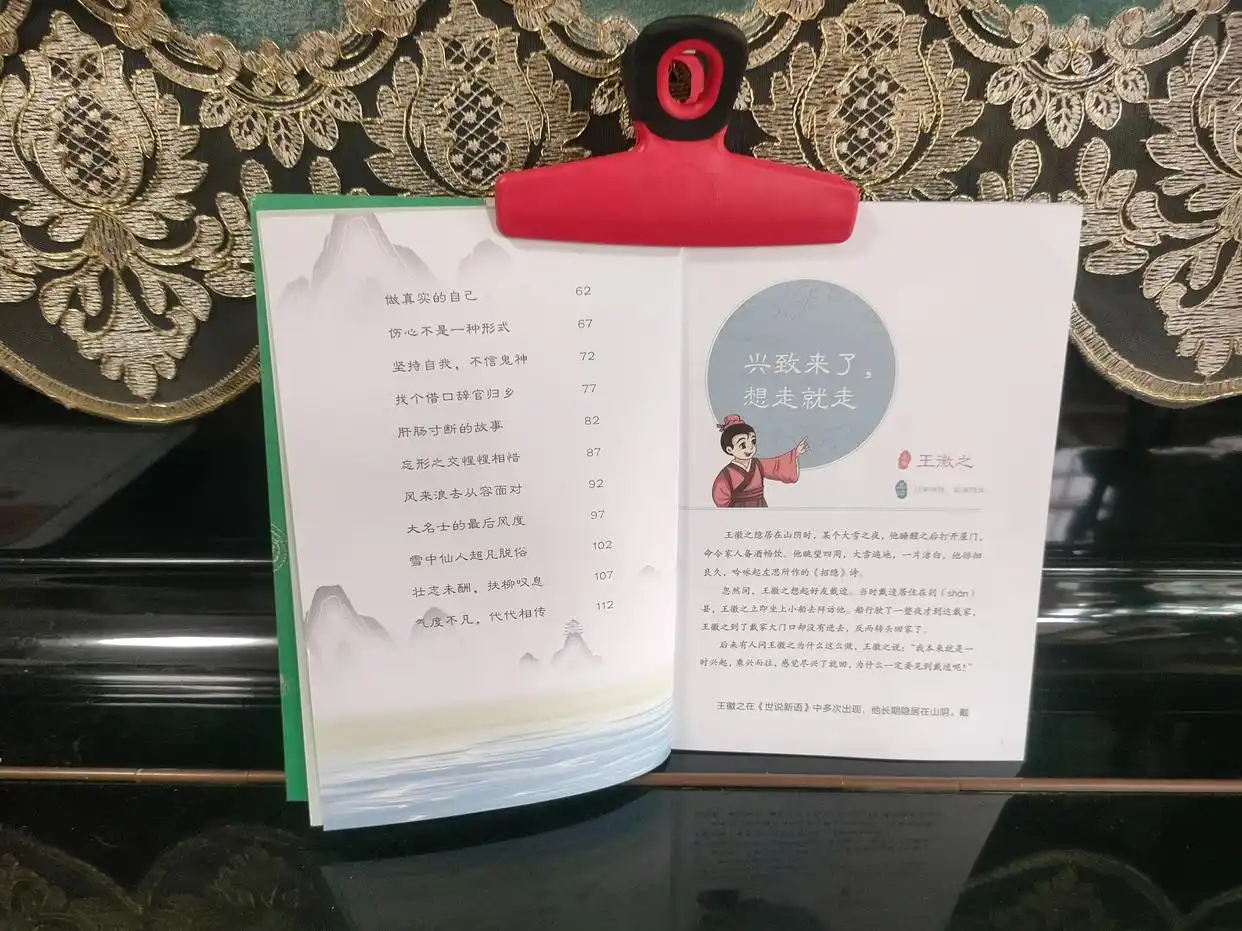 做真实的自己 62
伤心不是一种形式 67
坚持自我，不信鬼神 72
找个借口辞官归乡 77
肝肠寸断的故事 82
忘形之交惺惺相惜 87
风来浪去从容面对 92
大名士的最后风度 97
雪中仙人超凡脱俗 102
壮志未酬，扶柳叹息 107
气度不凡，代代相传 112
兴致来了，
想走就走
王徽之
王徽之隐居在山阴时，某个大雪之夜，他睡醒之后打开屋门，
命令家人备酒畅饮。他眺望四周，大雪遍地，一片洁白，他徘徊
良久，吟咏起左思所作的《招隐》诗。
忽然间，王徽之想起好友戴逵。当时戴逵居住在剡（shàn）
县，王徽之立即坐上小船去拜访他。船行驶了一整夜才到达戴家，
王徽之到了戴家大门口却没有进去，反而转头回家了。
后来有人问王徽之为什么这么做，王徽之说：“我本来就是一
时兴起，乘兴而往，感觉尽兴了就回，为什么一定要见到戴逵呢！”
王徽之在《世说新语》中多次出现，他长期隐居在山阴。戴